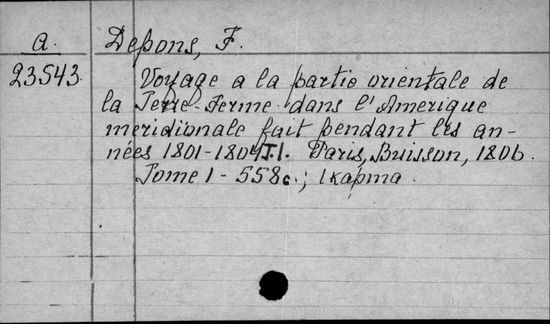 a. Depons, F.
23543. Voyage a la partie orientale de
la Terre-Ferme dans l'Amerique
meridïonale fait pendant les an-
nées 1801-1804 T.I. Paris, Buisson, 1806.
Tome 1 - 558с.; 1карта.